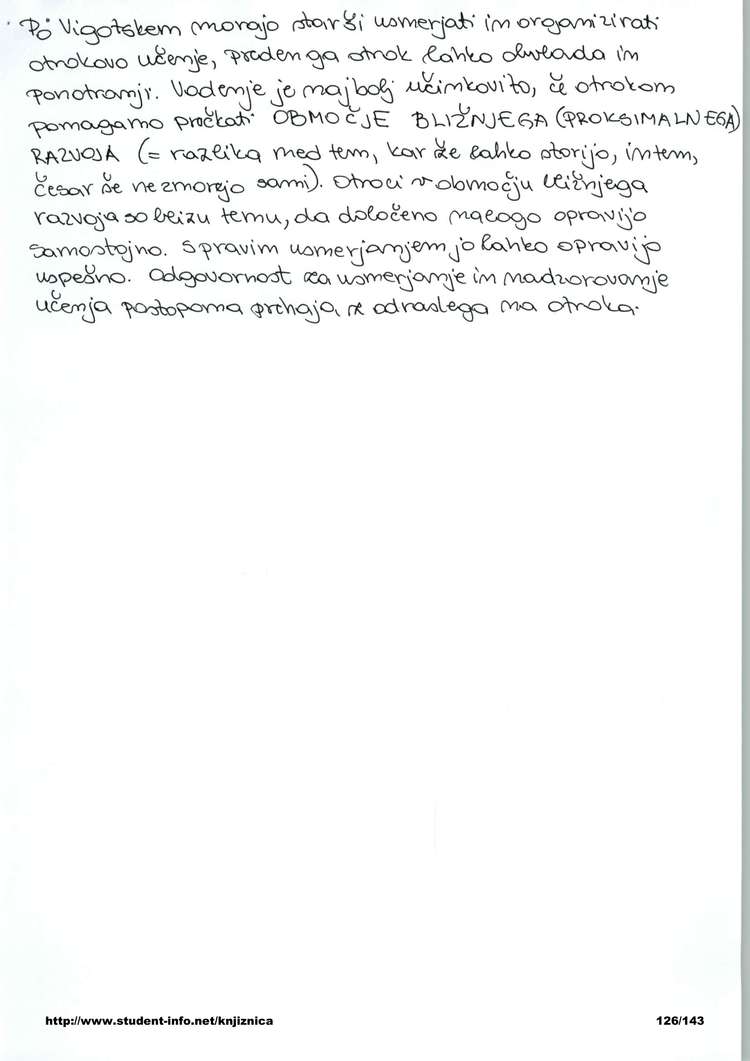 Po Vigotskem morajo starši usmerjati in organizirati
otrokovo učenje, preden ga otrok lahko obvlada in
ponotranji. Vodenje je najbolj učinkovito, če otrokom
pomagamo prečkati OBMOČJE BLIŽNJEGA (PROKSIMALNEGA)
RAZVOJA (= razlika med tem, kar že lahko storijo, in tem,
česar še ne zmorejo sami). Otroci v območju bližnjega
razvoja so blizu temu, da določeno nalogo opravijo
samostojno. S pravim usmerjanjem jo lahko opravijo
uspešno. Odgovornost za usmerjanje in nadzorovanje
učenja postopoma prehaja iz odraslega na otroka.
http://www.student-info.net/knjiznica
126/143